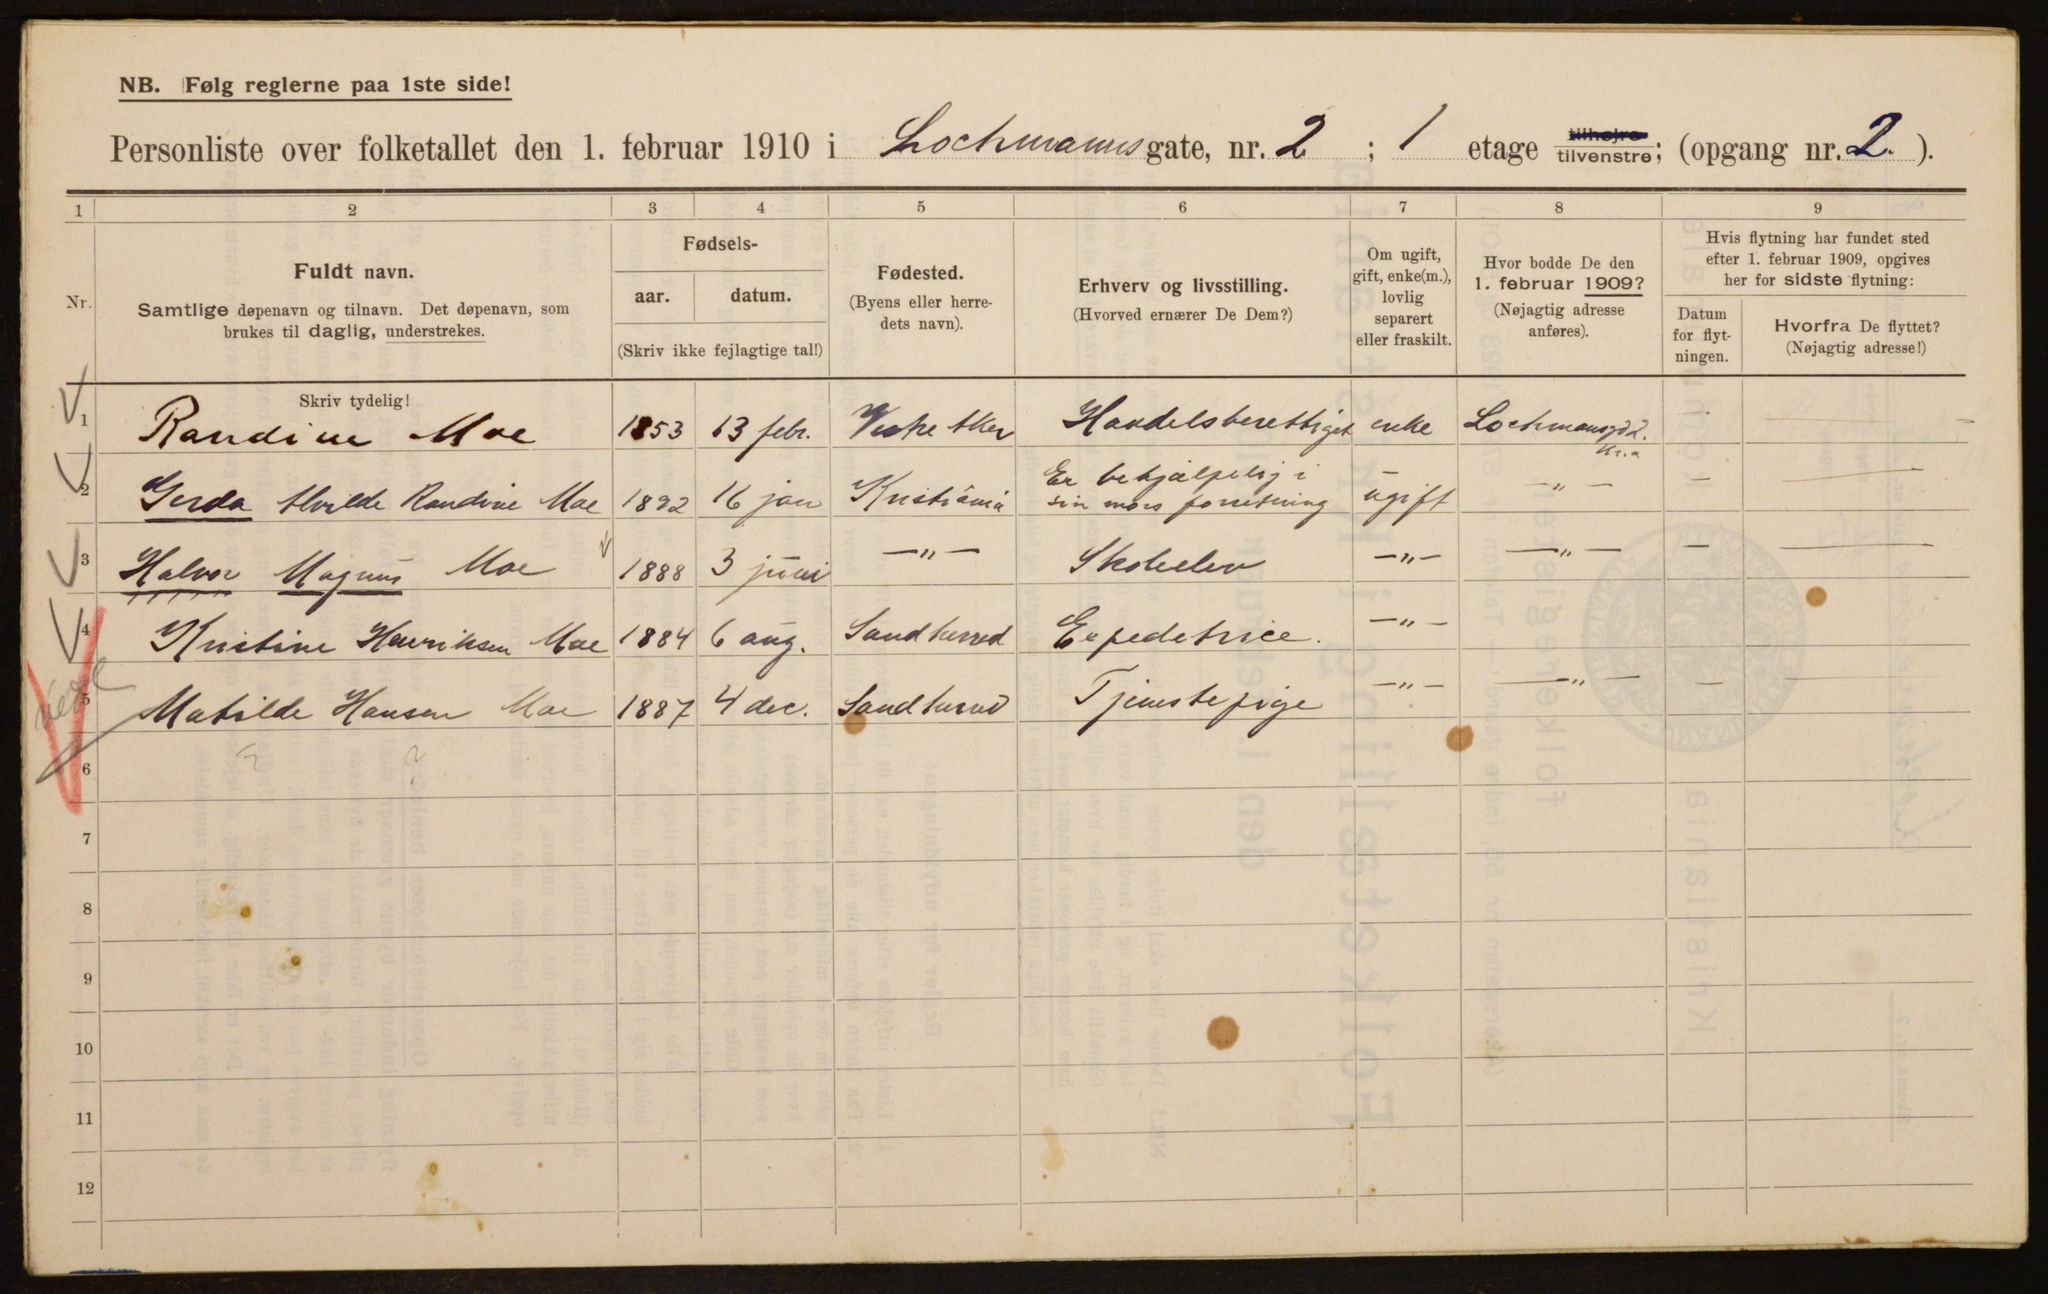 NB. Følg reglerne paa 1ste side!
Personliste over folketallet den 1. februar 1910 i Lochmanns gate, nr. 2 ; 1 etage tilhøjre tilvenstre; (opgang nr. 2. ).
1 2 3 4 5 6 7 8 9
Nr.
Fuldt navn.
Samtlige døpenavn og tilnavn. Det døpenavn, som
brukes til daglig, understrekes.
Fødsels-
aar. datum.
(Skriv ikke fejlagtige tal!)
Fødested.
(Byens eller herre-
dets navn).
Erhverv og livsstilling.
(Hvorved ernærer De Dem?)
Om ugift,
gift, enke(m.),
lovlig
separert
eller fraskilt.
Hvor bodde De den
1. februar 1909?
(Nøjagtig adresse
anføres).
Hvis flytning har fundet sted
efter 1. februar 1909, opgives
her for sidste flytning:
Datum
for flyt-
ningen.
Hvorfra De flyttet?
(Nøjagtig adresse!)
Skriv tydelig!
1 Randine Moe 1853 13 febr. Vestre Aker Handelsberettiget enke Lochmansgd 2. Kr.a
2 Gerda Alvilde Randine Moe 1892 16 jan Kristiania Er behjælpelig i sin mors forretning ugift — „ — –
3 Halvor Magnus Moe 1888 3 juni — „ — Skoleelev — „ — — „ — –
4 Kristine Henriksen Moe 1884 6 aug. Sandherred Expeditrice. — „ —
5 Matilde Hansen Moe 1887 4 dec. Sandherred Tjenestepige — „ — — „ — –
6
7
8
9
10
11
12